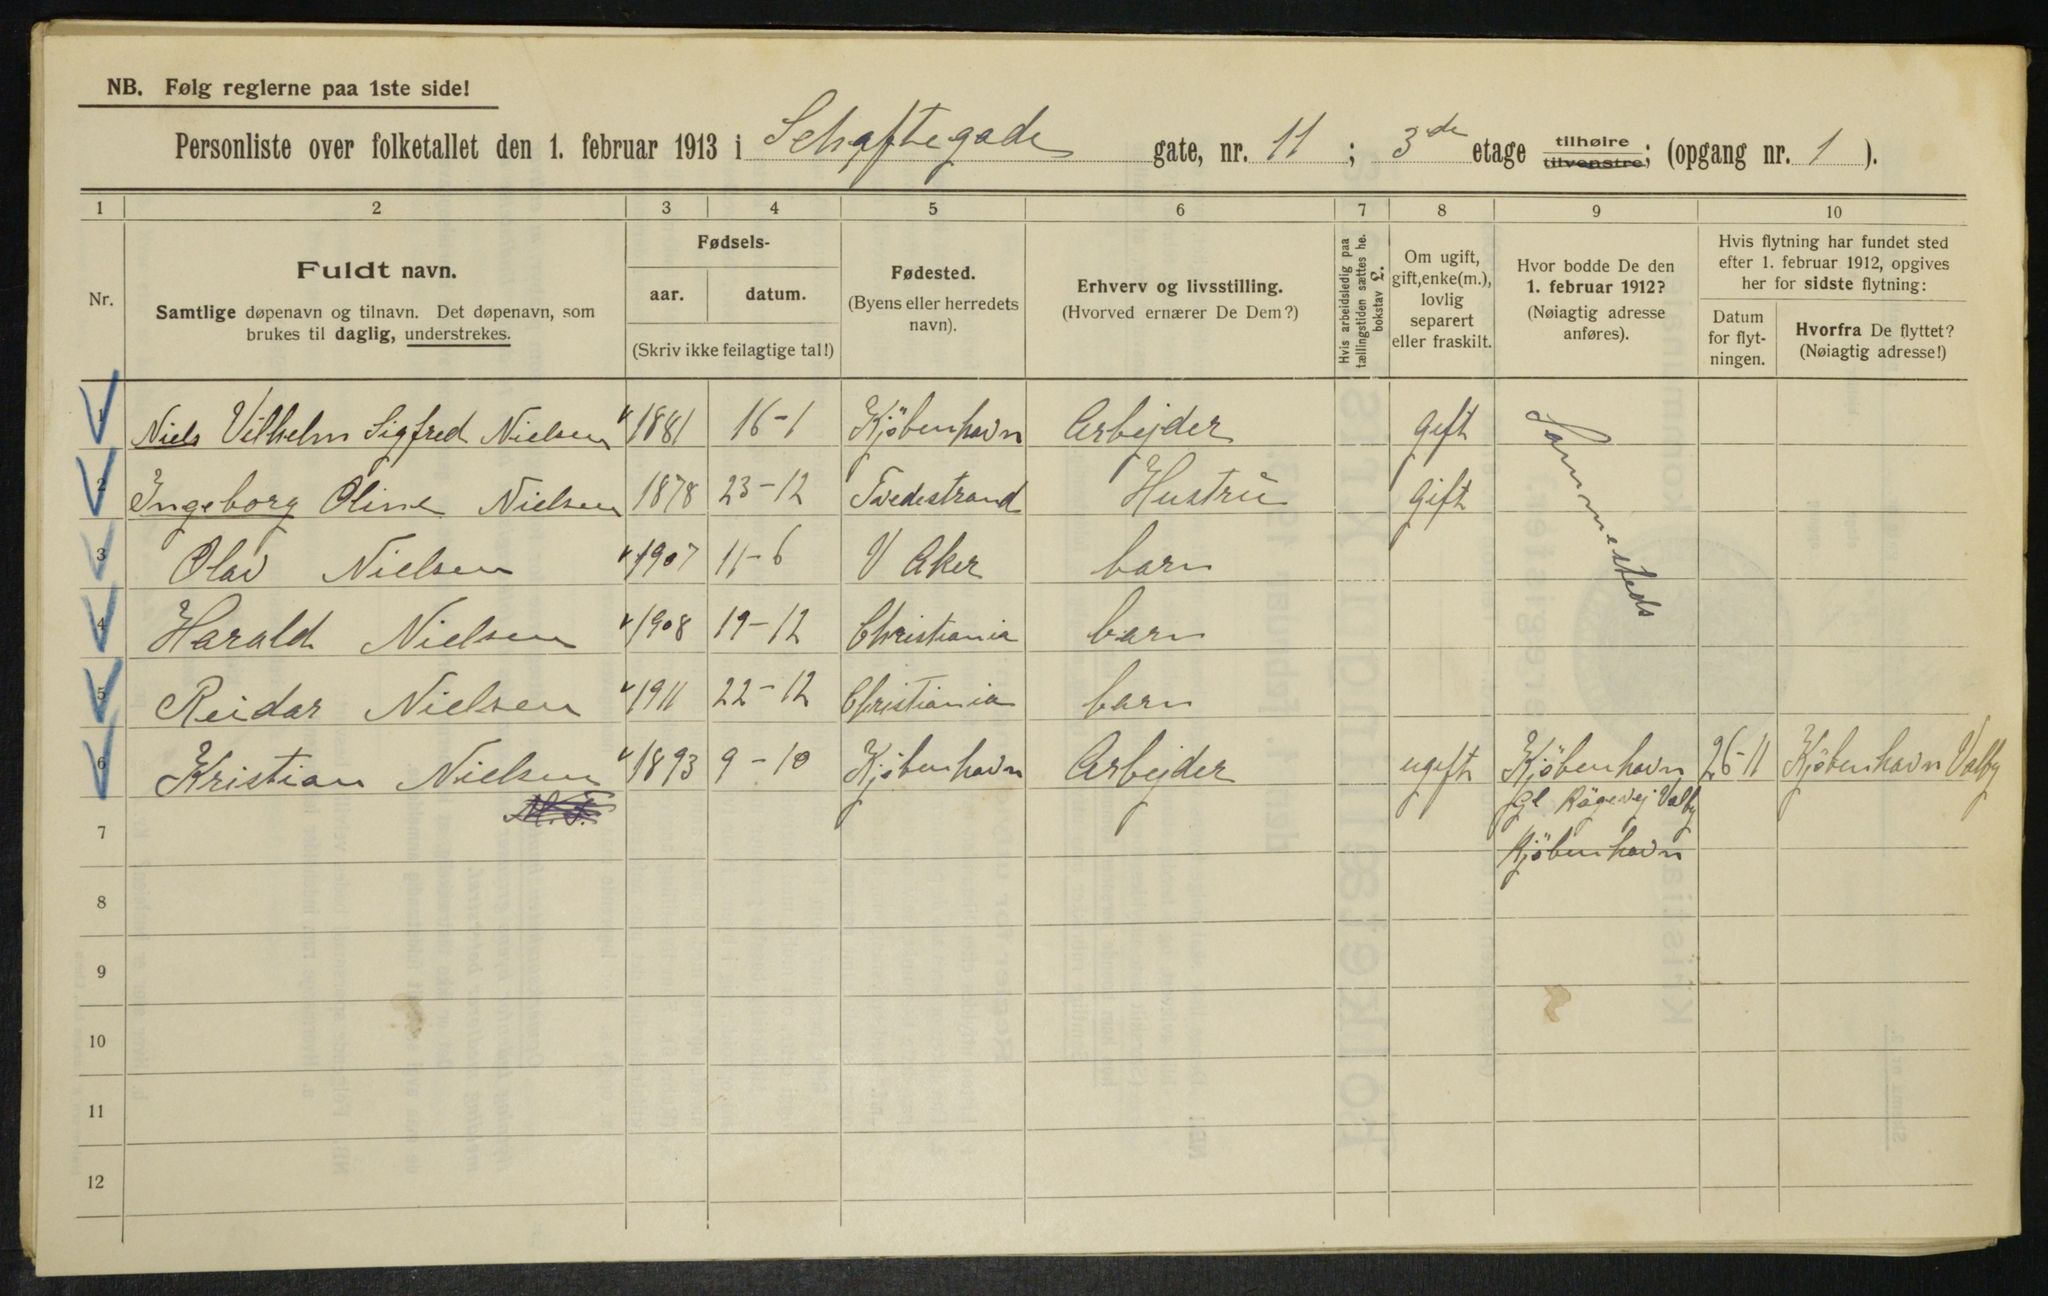 NB. Følg reglerne paa 1ste side!
Personliste over folketallet den 1. februar 1913 i Schaftegade gate, nr. 11; 3de etage tilhøire tilvenstre; (opgang nr. 1).
1 2 3 4 5 6 7 8 9 10
Nr.
Fuldt navn.
Samtlige døpenavn og tilnavn. Det døpenavn, som
brukes til daglig, understrekes.
Fødsels-
aar. datum.
(Skriv ikke feilagtige tal!)
Fødested.
(Byens eller herredets
navn).
Erhverv og livsstilling.
(Hvorved ernærer De Dem?)
Hvis arbeidsledig paa
tællingstiden sættes he.
bokstav L.
Om ugift,
gift, enke(m.),
lovlig
separert
eller fraskilt.
Hvor bodde De den
1. februar 1912?
(Nøiagtig adresse
anføres).
Hvis flytning har fundet sted
efter 1. februar 1912, opgives
her for sidste flytning:
Datum
for flyt-
ningen.
Hvorfra De flyttet?
(Nøiagtig adresse!)
1 Niels Vilhelm Sigfred Nielsen 1881 16-1 Kjöbenhavn Arbejder gift Sammesteds
2 Ingeborg Oline Nielsen 1878 23-12 Tvedestrand Hustru gift
3 Olav Nielsen 1907 11-6 V Aker barn
4 Harald Nielsen 1908 19-12 Christiania barn
5 Reidar Nielsen 1911 22-12 Christiania barn
6 Kristian Nielsen 1893 9-10 Kjöbenhavn Arbejder ugift Kjöbenhavn 26-11 Kjöbenhavn Valby
Gl Kögevej Valby
7
Kjöbenhavn
8
9
10
11
12